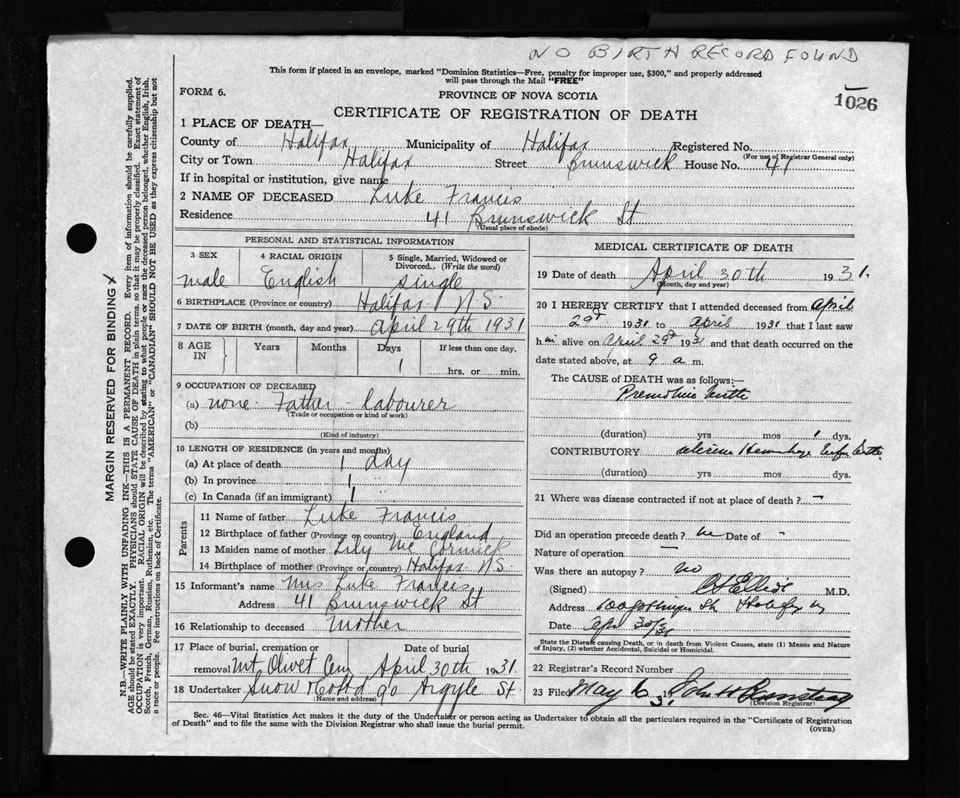 NO BIRTH RECORD FOUND
This form if placed in an envelope, marked "Dominion Statistics—Free, penalty for improper use, $300," and properly addressed
will pass through the Mail "FREE"
FORM 6.
PROVINCE OF NOVA SCOTIA
1026
CERTIFICATE OF REGISTRATION OF DEATH
1 PLACE OF DEATH—
County of Halifax Municipality of Halifax Registered No.
(For use of Registrar General only)
City or Town Halifax Street Brunswick House No. 41
If in hospital or institution, give name
2 NAME OF DECEASED Luke Francis
Residence 41 Brunswick St
(Usual place of abode)
PERSONAL AND STATISTICAL INFORMATION
3 SEX 4 RACIAL ORIGIN 5 Single, Married, Widowed or
Divorced. (Write the word)
male English single
6 BIRTHPLACE (Province or country) Halifax N.S.
7 DATE OF BIRTH (month, day and year) April 29th 1931
8 AGE IN Years Months Days If less than one day,
1 hrs. or min.
9 OCCUPATION OF DECEASED
(a) none. Father - labourer
(Trade or occupation or kind of work)
(b)
(Kind of industry)
10 LENGTH OF RESIDENCE (in years and months)
(a) At place of death 1 day
(b) In province 1
(c) In Canada (if an immigrant) 1
Parents
11 Name of father Luke Francis
12 Birthplace of father (Province or country) England
13 Maiden name of mother Lily Mc Cormick
14 Birthplace of mother (Province or country) Halifax N.S.
15 Informant's name Mrs Luke Francis
Address 41 Brunswick St
16 Relationship to deceased mother
17 Place of burial, cremation or Date of burial
removal Mt Olivet Cem April 30th 1931
18 Undertaker Snow & Co Ltd 90 Argyle St.
(Name and address)
MEDICAL CERTIFICATE OF DEATH
19 Date of death April 30th 1931.
(Month, day and year)
20 I HEREBY CERTIFY that I attended deceased from April
29th 1931 to April 1931 that I last saw
him alive on April 29th 1931 and that death occurred on the
date stated above, at 9 a m.
The CAUSE of DEATH was as follows:—
Premature birth
(duration) yrs mos 1 dys.
CONTRIBUTORY uterine Hemorrhage before birth
(duration) yrs. mos. dys.
21 Where was disease contracted if not at place of death? -
Did an operation precede death? no Date of -
Nature of operation —
Was there an autopsy? no
(Signed) M.D.
Address Halifax
Date Apr 30/31
State the Disease causing Death, or in death from Violent Causes, state (1) Means and Nature
of Injury, (2) whether Accidental, Suicidal or Homicidal.
22 Registrar's Record Number
23 Filed May 6 1931 John H
(Division Registrar)
Sec. 46—Vital Statistics Act makes it the duty of the Undertaker or person acting as Undertaker to obtain all the particulars required in the "Certificate of Registration
of Death" and to file the same with the Division Registrar who shall issue the burial permit.
(OVER)
MARGIN RESERVED FOR BINDING
N.B.—WRITE PLAINLY WITH UNFADING INK—THIS IS A PERMANENT RECORD. Every item of information should be carefully supplied.
AGE should be stated EXACTLY. PHYSICIANS should STATE CAUSE OF DEATH in plain terms, so that it may be properly classified. Exact statement of
OCCUPATION is very important. RACIAL ORIGIN will be described by stating to what people or race the deceased person belonged, whether English, Irish,
Scotch, French, German, Russian, Ruthenian, etc. The terms "AMERICAN" or "CANADIAN" SHOULD NOT BE USED as they express citizenship but not
a race or people. See instructions on back of Certificate.